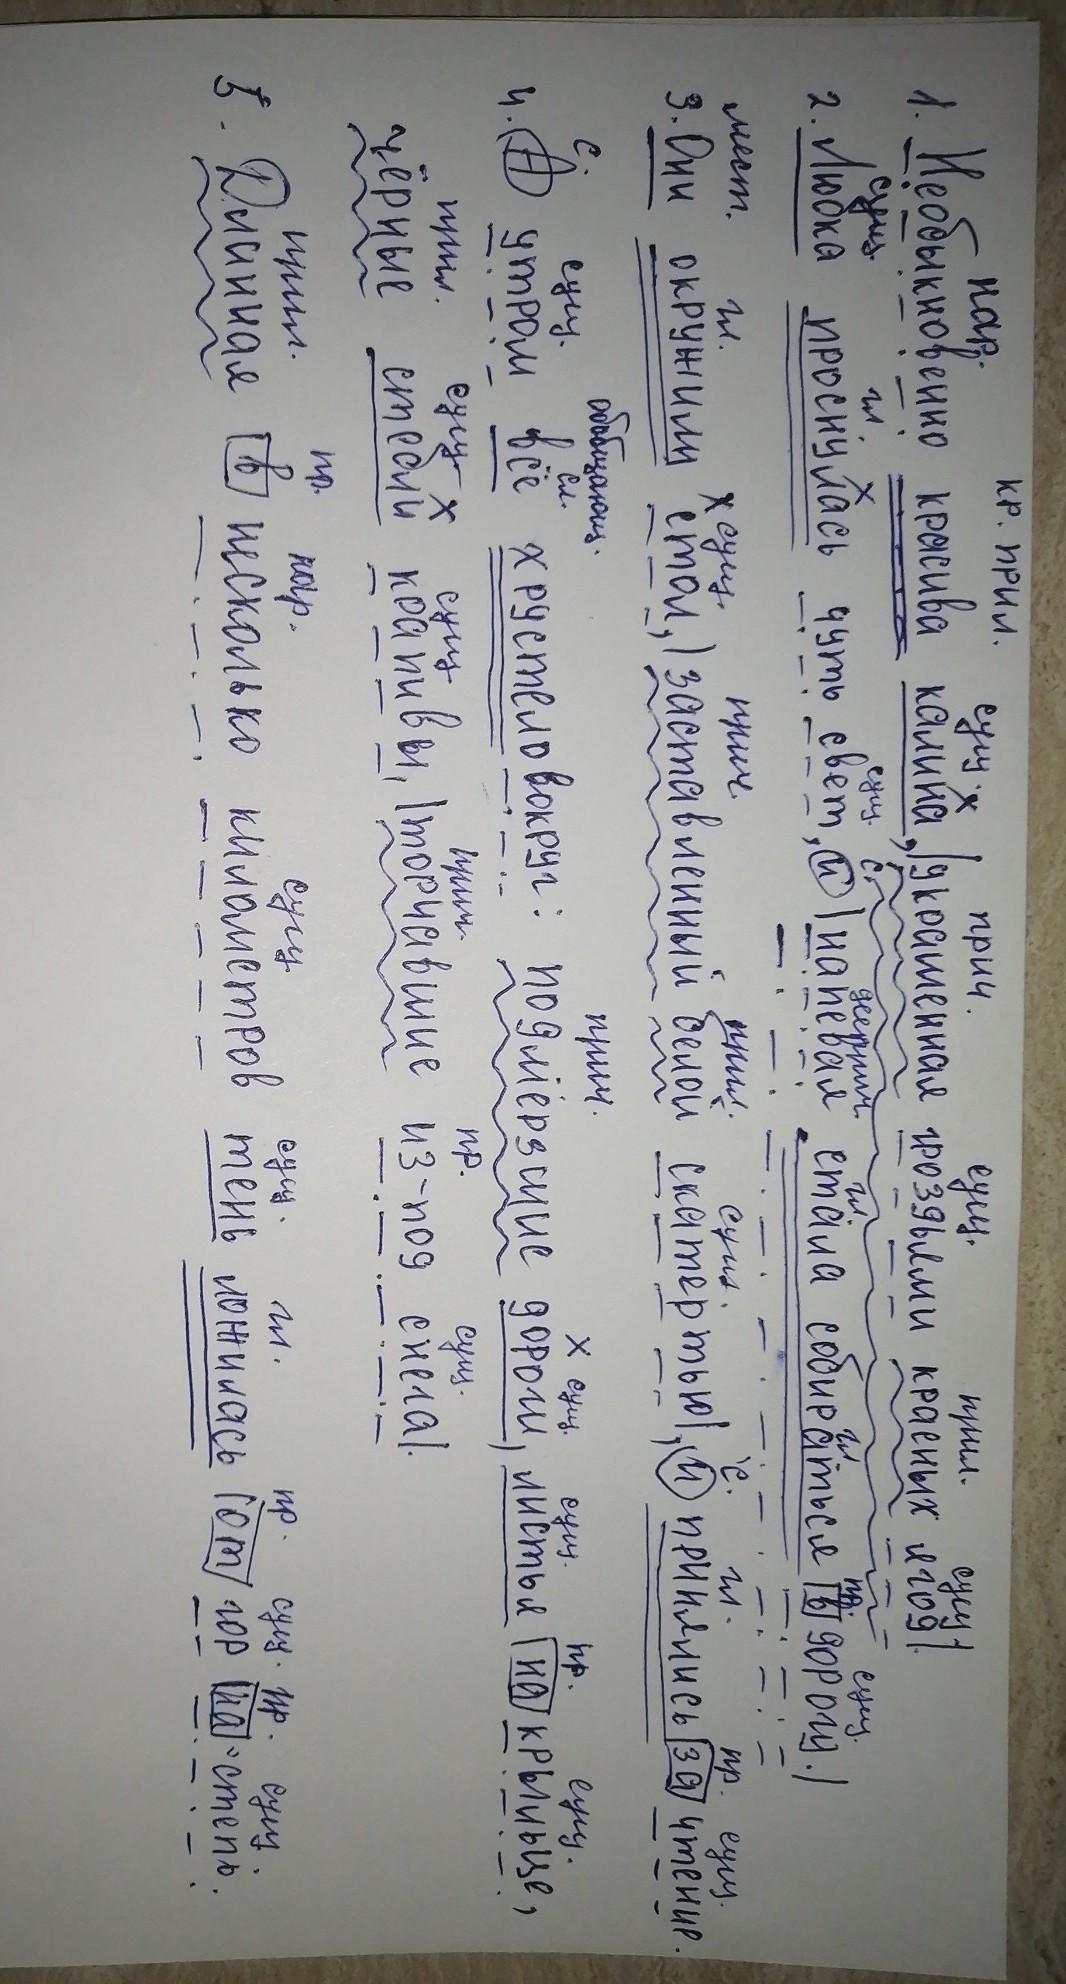 нар. кр. прил. сущ. х прич. сущ. прил. сущ.
1. Необыкновенно красива калина, украшенная гроздьями красных ягод.
сущ. гл. х сущ. с. дееприч. гл. гл. пр. сущ.
2. Любка проснулась чуть свет, и напевая стала собираться в дорогу.
мест. гл. х сущ. прич. прил. сущ. с. гл. пр. сущ.
3. Они окружили стол, заставленный белой скатертью, и принялись за чтение.
с. сущ. обобщающ. сл. прич. х сущ. сущ. пр. сущ.
4. А утром всё хрустело вокруг: подмёрзшие дороги, листья на крыльце,
прил. сущ. х сущ. прич. пр. сущ.
чёрные стебли крапивы, торчавшие из-под снега.
прил. пр. нар. сущ. сущ. гл. пр. сущ. пр. сущ.
5. Длинная в несколько километров тень ложилась от гор на степь.